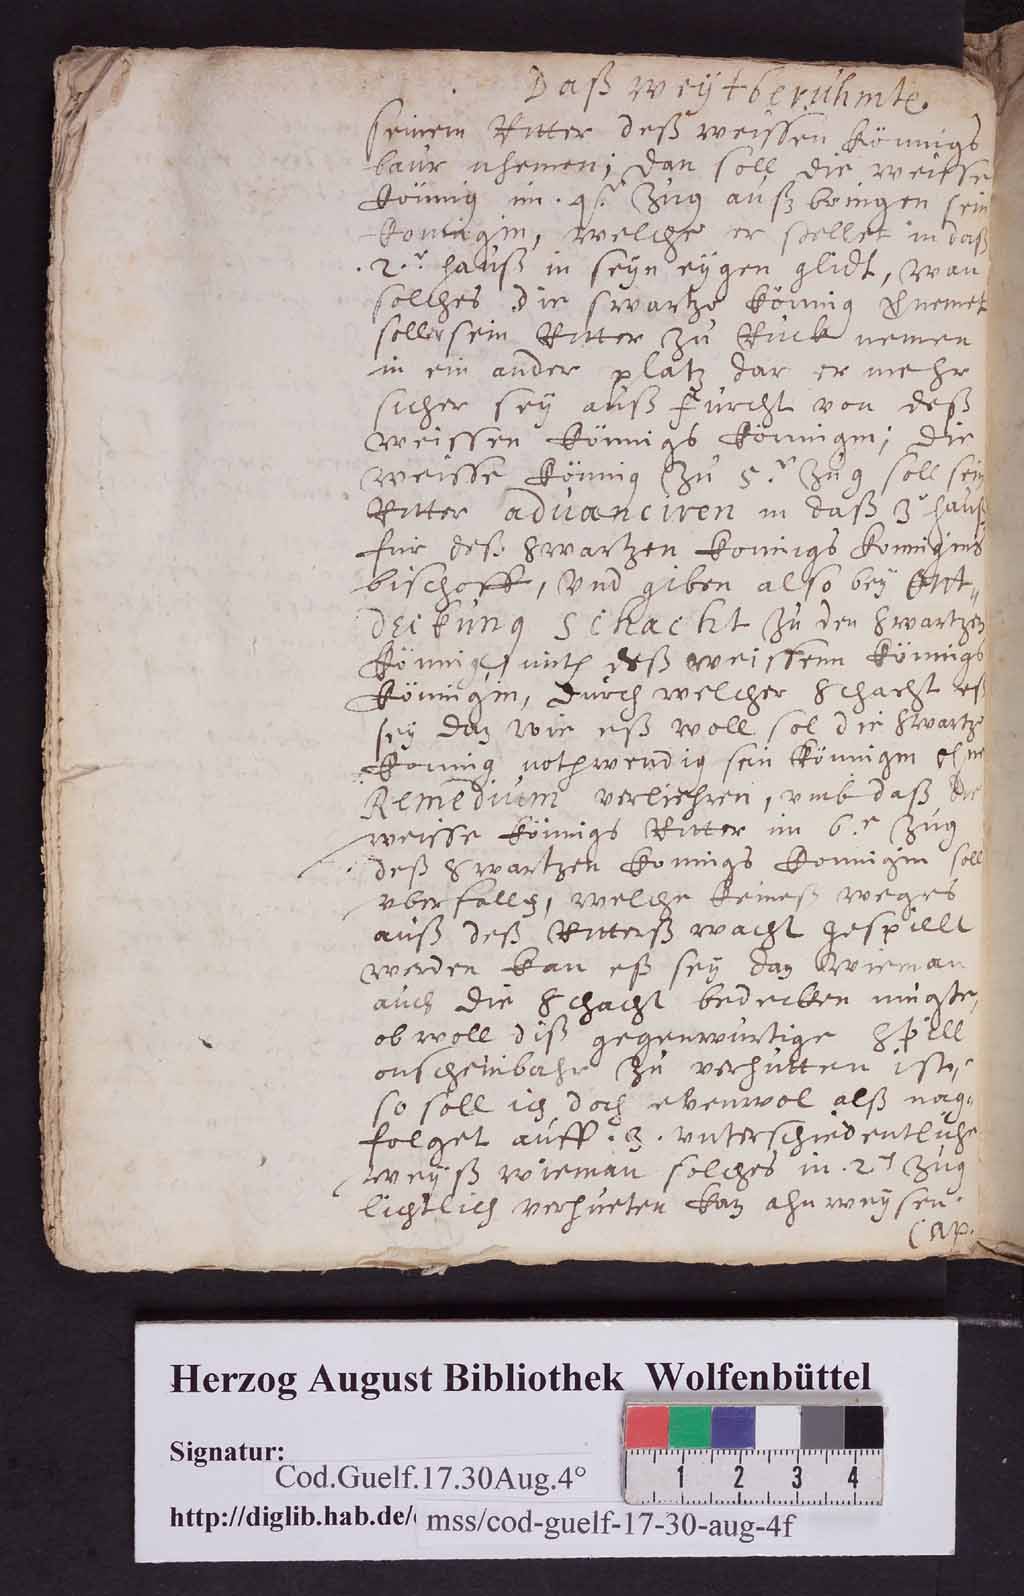 Daß weytberühmte
seinem Ritter deß weissen Königs
baur nhemen; dan soll die weisse
König im .4.r Zug auß bringen sein
Konigin, welche er stellet in daß
.2.r hauß in seyn eygen glidt, wan
solches die swartze König
soll er sein Ritter zu Rück nemen
in ein ander platz dar er mehr
sicher sey auß furcht von deß
weissen Königs Königin; die
weisse König zu 5.r Zug soll sein
Ritter aduanciren in daß 3r hauß
für deß swartzen Konigs Konigins
bischoff, vnd giben also bey Ent„
deckung Schacht zu den swartzen
König, mit deß weissenn Königs
Königin, durch welcher schacht eß
sey dan wie eß woll sol die swartze
Konnig nothwendig sein Königin ohne
Remedium verliehren, vmb daß die
weisse Königs Ritter im 6.r Zug
deß swartzen Konings Konnigin soll
vberfallen, welche keineß weges
auß deß Ritterß macht gespillt
werden kan eß sey dan wieman
auch die schacht bedecken mugte,
ob woll diß gegenwurtige spill
onscheinbahr zu verhutten ist,
so soll ich doch evenwol alß nag„
folget auff .3. vnterschiedentliche
weyß wieman solches in .2.t Zug
lichtlich verhueten kan ahnweysen.
Cap.
Herzog August Bibliothek Wolfenbüttel
Signatur:
Cod.Guelf.17.30Aug.4°
http://diglib.hab.de/
mss/cod-guelf-17-30-aug-4f
1 2 3 4